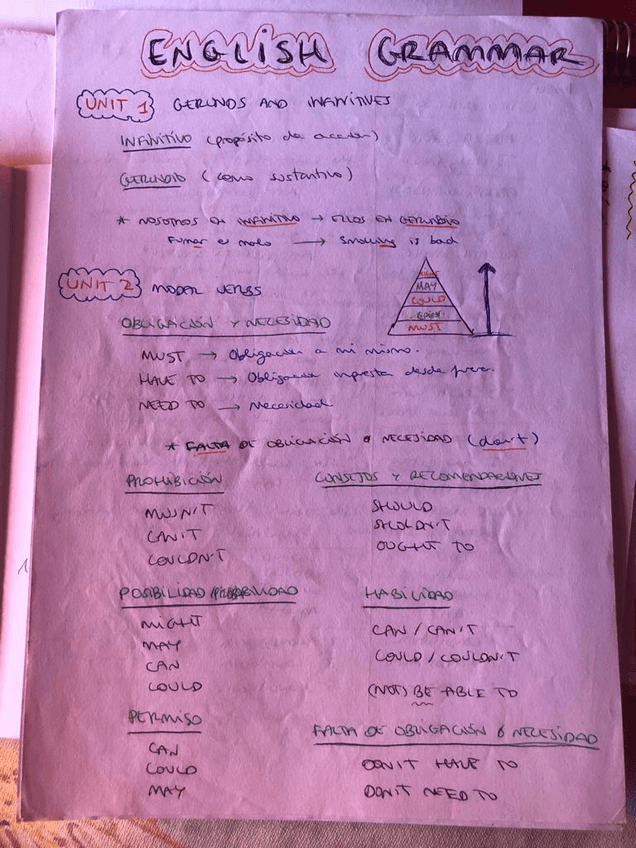 ENGLISH GRAMMAR
UNIT 1 GERUNDS AND INFINITIVES
INFINITIVO (propósito de acción)
GERUNDIO (como sustantivo)
* NOSOTROS EN INFINITIVO → ELLOS EN GERUNDIO
Fumar es malo → Smoking is bad
UNIT 2 MODAL VERBS
MIGHT
MAY
COULD
MUST
OBLIGACIÓN Y NECESIDAD
MUST → Obligación a mi mismo.
HAVE TO → Obligación impuesta desde fuera.
NEED TO → Necesidad.
* FALTA DE OBLIGACIÓN O NECESIDAD (don't)
PROHIBICIÓN
MUSN'T
CAN'T
COULDN'T
CONSEJOS Y RECOMENDACIONES
SHOULD
SHOLDN'T
OUGHT TO
POSIBILIDAD/PROBABILIDAD
MIGHT
MAY
CAN
COULD
HABILIDAD
CAN / CAN'T
COULD / COULDN'T
(NOT) BE ABLE TO
PERMISO
CAN
COULD
MAY
FALTA DE OBLIGACIÓN Ó NECESIDAD
DON'T HAVE TO
DON'T NEED TO